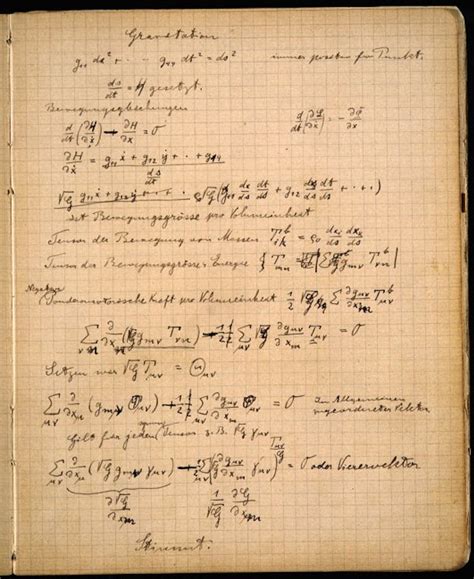 Gravitation
g₁₁ dx² + · · · g₄₄ dt² = ds² immer positiv für Punkt.
ds/dt = H gesetzt.
Bewegungsgleichungen
d/dt (∂H/∂ẋ) − ∂H/∂x = 0 d/dt (∂Φ/∂ẋ) = − ∂Φ/∂x
∂H/∂ẋ = (g₁₁ ẋ + g₁₂ ẏ + · · + g₁₄) / (ds/dt)
√G (g₁₁ dx/ds dt/ds + g₁₂ dy/ds dt/ds + · · ·)
ist Bewegungsgrösse pro Volumeinheit
Tensor der Bewegung von Massen T^b_ik = ρ₀ dx_i/ds dx_k/ds
Tensor der Bewegungsgrösse u. Energie T_mn = √G Σ g_mν T^b_νn
Negative Ponderomotorische Kraft pro Volumeinheit 1/2 √G Σ ∂g_μν/∂x_m T^b_μν
Σ_νn ∂/∂x_n (√G g_mν T_νn) − 1/2 Σ √G ∂g_μν/∂x_m T_μν = 0
Setzen wir √G T_μν = Θ_μν
Σ_μν ∂/∂x_n (g_mν Θ_μν) − 1/2 Σ_μν ∂g_μν/∂x_m Θ_μν = 0 Im Allgemeinen
Gilt für jeden Tensor z.B. √G γ_μν
Σ_μν ∂/∂x_n (√G g_mν γ_μν) − 1/2 Σ_μν √G ∂g_μν/∂x_m γ_μν = 0 oder Vierervektor
∂√G/∂x_m 1/√G ∂G/∂x_m
Stimmt.